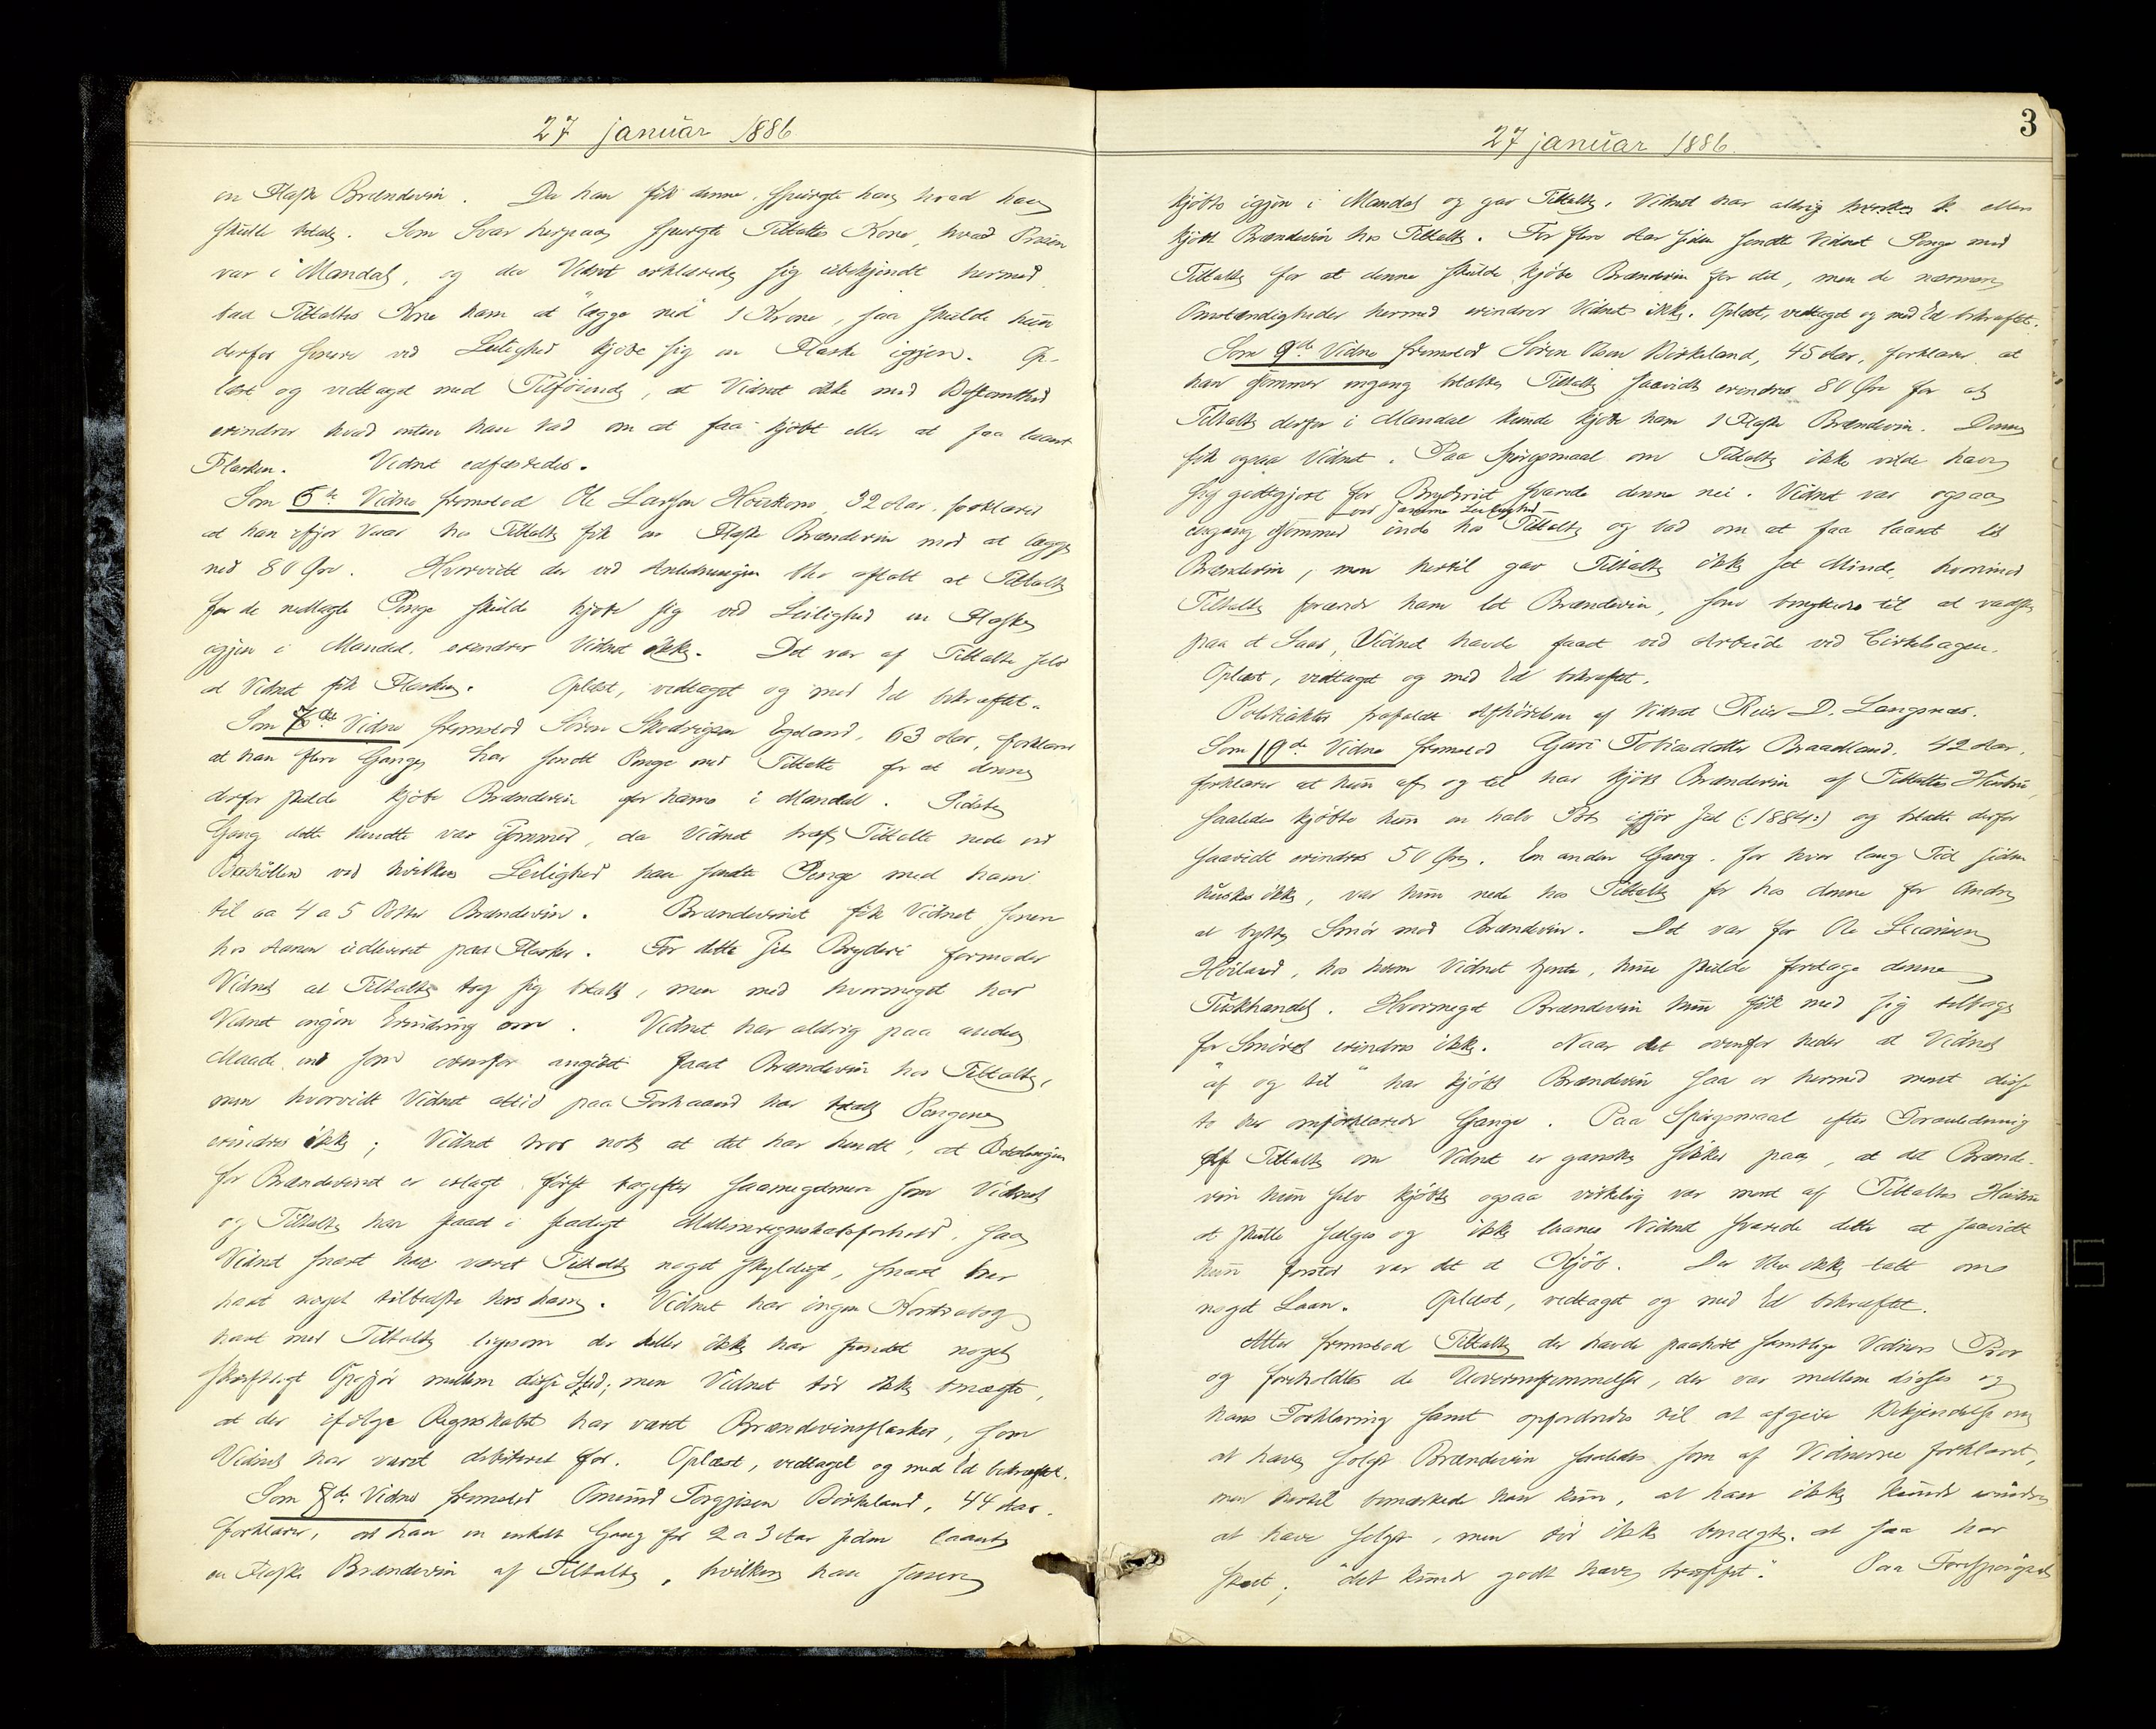 27 januar 1886
en Flaske Brændevin. Da han fik denne, spurgte han hvad han
skulde betale. Som Svar herpaa spurgte Tiltaltes Kone, hvad Prisen
var i Mandal, og da Vidnet erklærede sig ubekjendt hermed
bad Tiltaltes Kone ham at "lægge ned" 1 Krone, saa skulde hun
derfor senere ved Leilighed kjøbe sig en Flaske igjen. Op-
læst og vedtaget med Tilføiende, at Vidnet ikke med Bestemthed
erindrer hvad enten han bad om at faa kjøbt eller at faa laant
Flasken. Vidnet edfæstedes.
Som 6te Vidne fremstod Ole Larsen 32 Aar, forklarer
at han ifjor Vaar hos Tiltalte fik en Flaske Brændevin mod at lægge
ned 80 Øre. Hvorvidt der ved Anledningen blev aftalt at Tiltalte
for de nedlagte Penge skulde kjøbe sig ved Leilighed en Flaske
igjen i Mandal, erindrer Vidnet ikke. Det var af Tiltalte selv
at Vidnet fik Flasken. Oplæst, vedtaget og med Ed bekræftet.
Som 7de Vidne fremstod Søren Egeland, 63 Aar, forklarer
at han flere Gange har sendt Penge med Tiltalte for at denne
derfor skulde kjøbe Brændevin for ham i Mandal. Sidste
Gang dette hændte var ifjommer, da Vidnet traf Tiltalte nede ved
ved hvilken Leilighed han sendte Penge med ham
til ca 4 a 5 Potter Brændevin. Brændevinet fik Vidnet senere
hos Aanen udleveret paa Flasker. For dette sit Bryderi formoder
Vidnet at Tiltalte tog sig betalt, men med hvormeget har
Vidnet ingen Erindring om. Vidnet har aldrig paa anden
Maade end som ovenfor angivet faaet Brændevin hos Tiltalte,
men hvorvidt Vidnet altid paa Forhaand har betalt Pengene
erindres ikke; Vidnet tror nok at det har hændt, at Betalingen
for Brændevinet er erlagt først bagefter saameget mere som Vidnet
og Tiltalte har staaet i stadigt Mellemregnskabsforhold, saa
Vidnet snart har været Tiltalte noget skyldigt, snart har
havt noget tilbedste hos ham. Vidnet har ingen Kontrabog
havt med Tiltalte ligesom der heller ikke har fundet noget
skriftligt Opgjør mellem disse Sted; men Vidnet tør ikke benægte,
at der ifølge Regnskabet har været Brændevinsflasker, som
Vidnet har været debiteret for. Oplæst, vedtaget og med Ed bekræftet.
Som 8de Vidne fremstod Omund Torgjisen Birkeland, 44 Aar.
forklarer, at han en enkelt Gang for 2 a 3 Aar siden laante
en Flaske Brændevin af Tiltalte, hvilken han senere
3
27 januar 1886.
kjøbte igjen i Mandal og gav Tiltalte. Vidnet har aldrig hverken eller
kjøbt Brændevin hos Tiltalte. For flere Aar siden sendte Vidnet Penge med
Tiltalte for at denne skulde kjøbe Brændevin for det, men de nærmere
Omstændigheder hermed erindrer Vidnet ikke. Oplæst, vedtaget og med Ed bekræftet.
Som 9de Vidne fremstod Søren Olsen Birkeland, 45 Aar, forklarer at
han ifjommer engang betalte Tiltalte saavidt erindres 80 Øre for at
Tiltalte derfor i Mandal kunde kjøbe ham 1 Flaske Brændevin. Denne
fik ogsaa Vidnet. Paa Spørgsmaal om Tiltalte ikke vilde have
sig godtgjort for Bryderiet svarede denne nei. Vidnet var ogsaa
ved samme Leilighed
engang ifjommer inde hos Tiltalte og bad om at faa laant lit
Brændevin, men hertil gav Tiltalte ikke sit Minde, hvorimod
Tiltalte forærede ham lit Brændevin, som benyttedes til at vadske
paa et Saar, Vidnet havde faaet ved Arbeide ved Cirkelsagen.
Oplæst, vedtaget og med Ed bekræftet.
Politiaktor frafaldt Afhørelsen af Vidnet Reier D. Langsnæs.
Som 10de Vidne fremstod Guri Tobiasdatter Braadland, 42 Aar,
forklarer at hun af og til har kjøbt Brændevin af Tiltaltes Hustru,
saaledes kjøbte hun en halv Pot ifjor Jul (:1884:) og betalte derfor
saavidt erindres 50 Øre. En anden Gang, for hvor lang Tid siden
huskes ikke, var hun nede hos Tiltalte for hos denne for Andre
at bytte Smør mod Brændevin. Det var for Ole
Høiland, hos hvem Vidnet tjente, hun skulde foretage denne
Tuskhandel. Hvormeget Brændevin hun fik med sig tilbage
for Smøret erindres ikke. Naar det ovenfor heder at Vidnet
"af og til" har kjøbt Brændevin saa er hermed ment disse
to her omforklarede Gange. Paa Spørgsmaal efter Foranledning
af Tiltalte om Vidnet er ganske sikker paa, at det Brænde-
vin hun selv kjøbte ogsaa virkelig var ment af Tiltaltes Hustru
at skulle sælges og ikke laanes Vidnet svarede dette at saavidt
hun forstod var det et Kjøb. Der blev ikke talt om
noget Laan. Oplæst, vedtaget og med Ed bekræftet.
Atter fremstod Tiltalte der havde paahørt samtlige Vidners Prov
og foreholdtes de Uoverensstemmelser, der var mellem disses og
hans Forklaring samt opfordredes til at afgive Tilkjendelse om
at have solgt Brændevin saaledes som af Vidnerne forklaret,
men hertil bemærkede han kun, at han ikke kunde erindre
at have solgt, men tør ikke benægte at saa har
skeet; "det kunde godt have truffet". Paa Forespørgsel